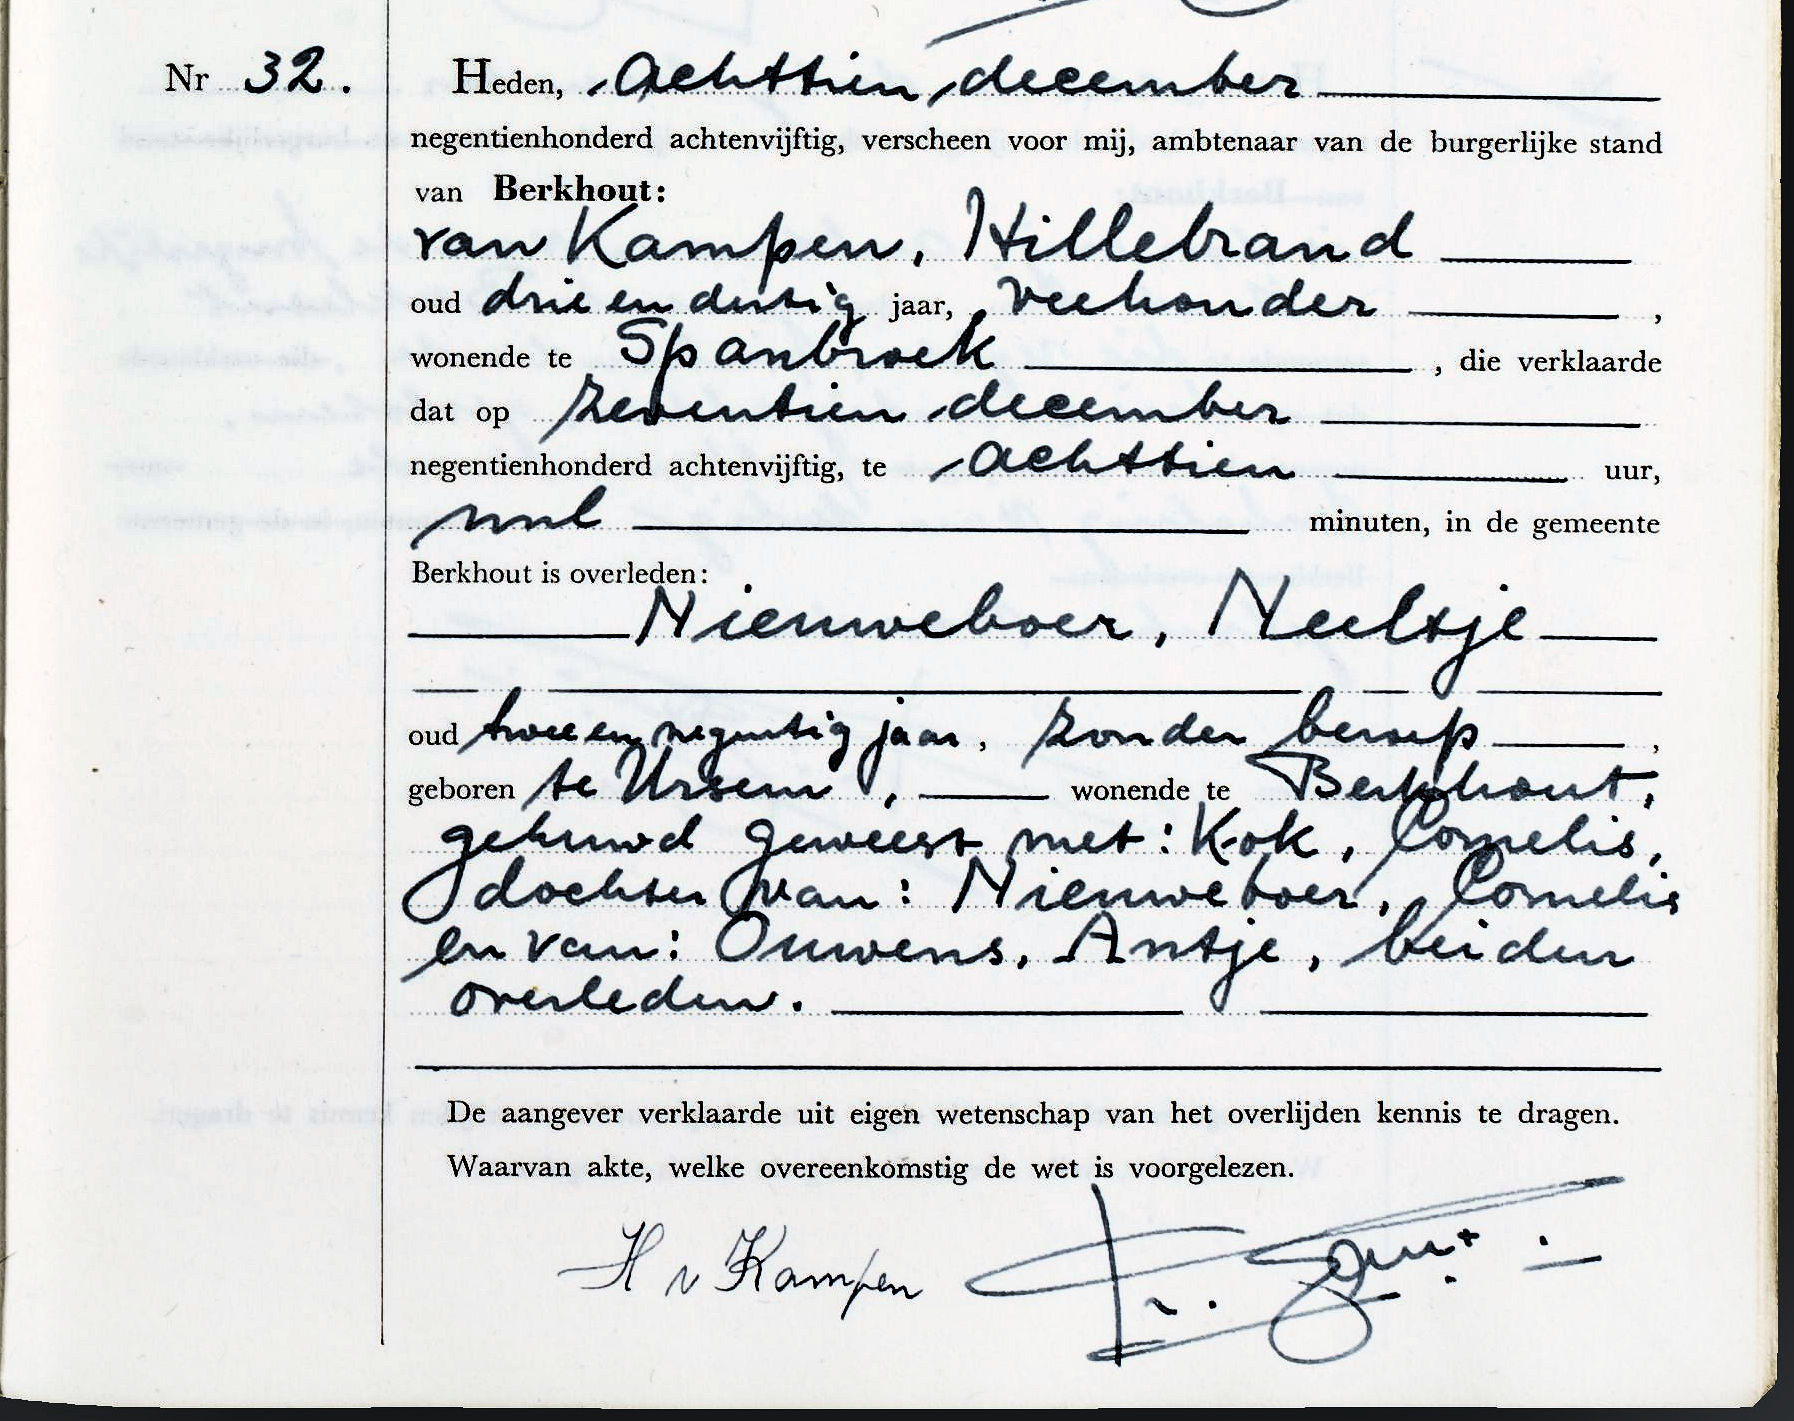 Nr 32.
Heden, achttien december
negentienhonderd achtenvijftig, verscheen voor mij, ambtenaar van de burgerlijke stand
van Berkhout:
van Kampen, Hillebrand
oud drie en dertig jaar, veehouder ,
wonende te Spanbroek , die verklaarde
dat op zeventien december
negentienhonderd achtenvijftig, te achttien uur,
nul minuten, in de gemeente
Berkhout is overleden:
Nieuweboer, Neeltje
oud twee en negentig jaar, zonder beroep ,
geboren te Ursem , wonende te Berkhout,
gehuwd geweest met: Kok, Cornelis,
dochter van: Nieuweboer, Cornelis
en van: Ouwens, Antje, beiden
overleden.
De aangever verklaarde uit eigen wetenschap van het overlijden kennis te dragen.
Waarvan akte, welke overeenkomstig de wet is voorgelezen.
H v Kampen